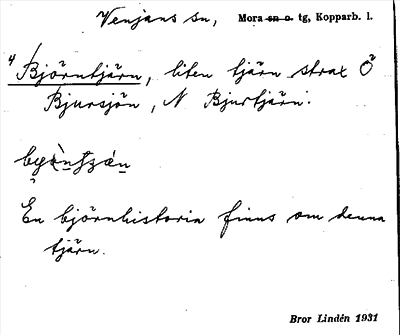 Venjans sn, Mora sn o. tg, Kopparb. l.
4 Björntjärn, liten tjärn strax Ö
Bjursjön, N Bjurtjärn.
En björnhistoria finns om denna
tjärn.
Bror Lindén 1931